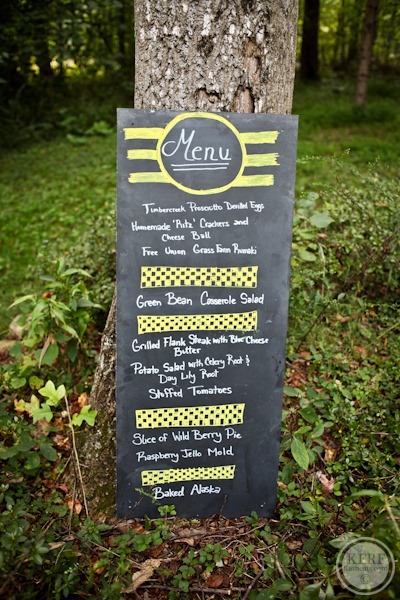 Menu
Timbercreek Prosciutto Deviled Eggs
Homemade 'Ritz' Crackers and
Cheese Ball
Free Union Grass Farm Rumaki
Green Bean Casserole Salad
Grilled Flank Steak with Blue Cheese
Butter
Potato Salad with Celery Root &
Day Lily Root
Stuffed Tomatoes
Slice of Wild Berry Pie
Raspberry Jello Mold
Baked Alaska
KERF